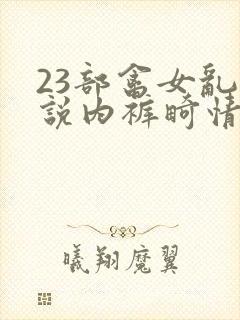 23部畜女乱
説内裤畸情
曦翔魔翼